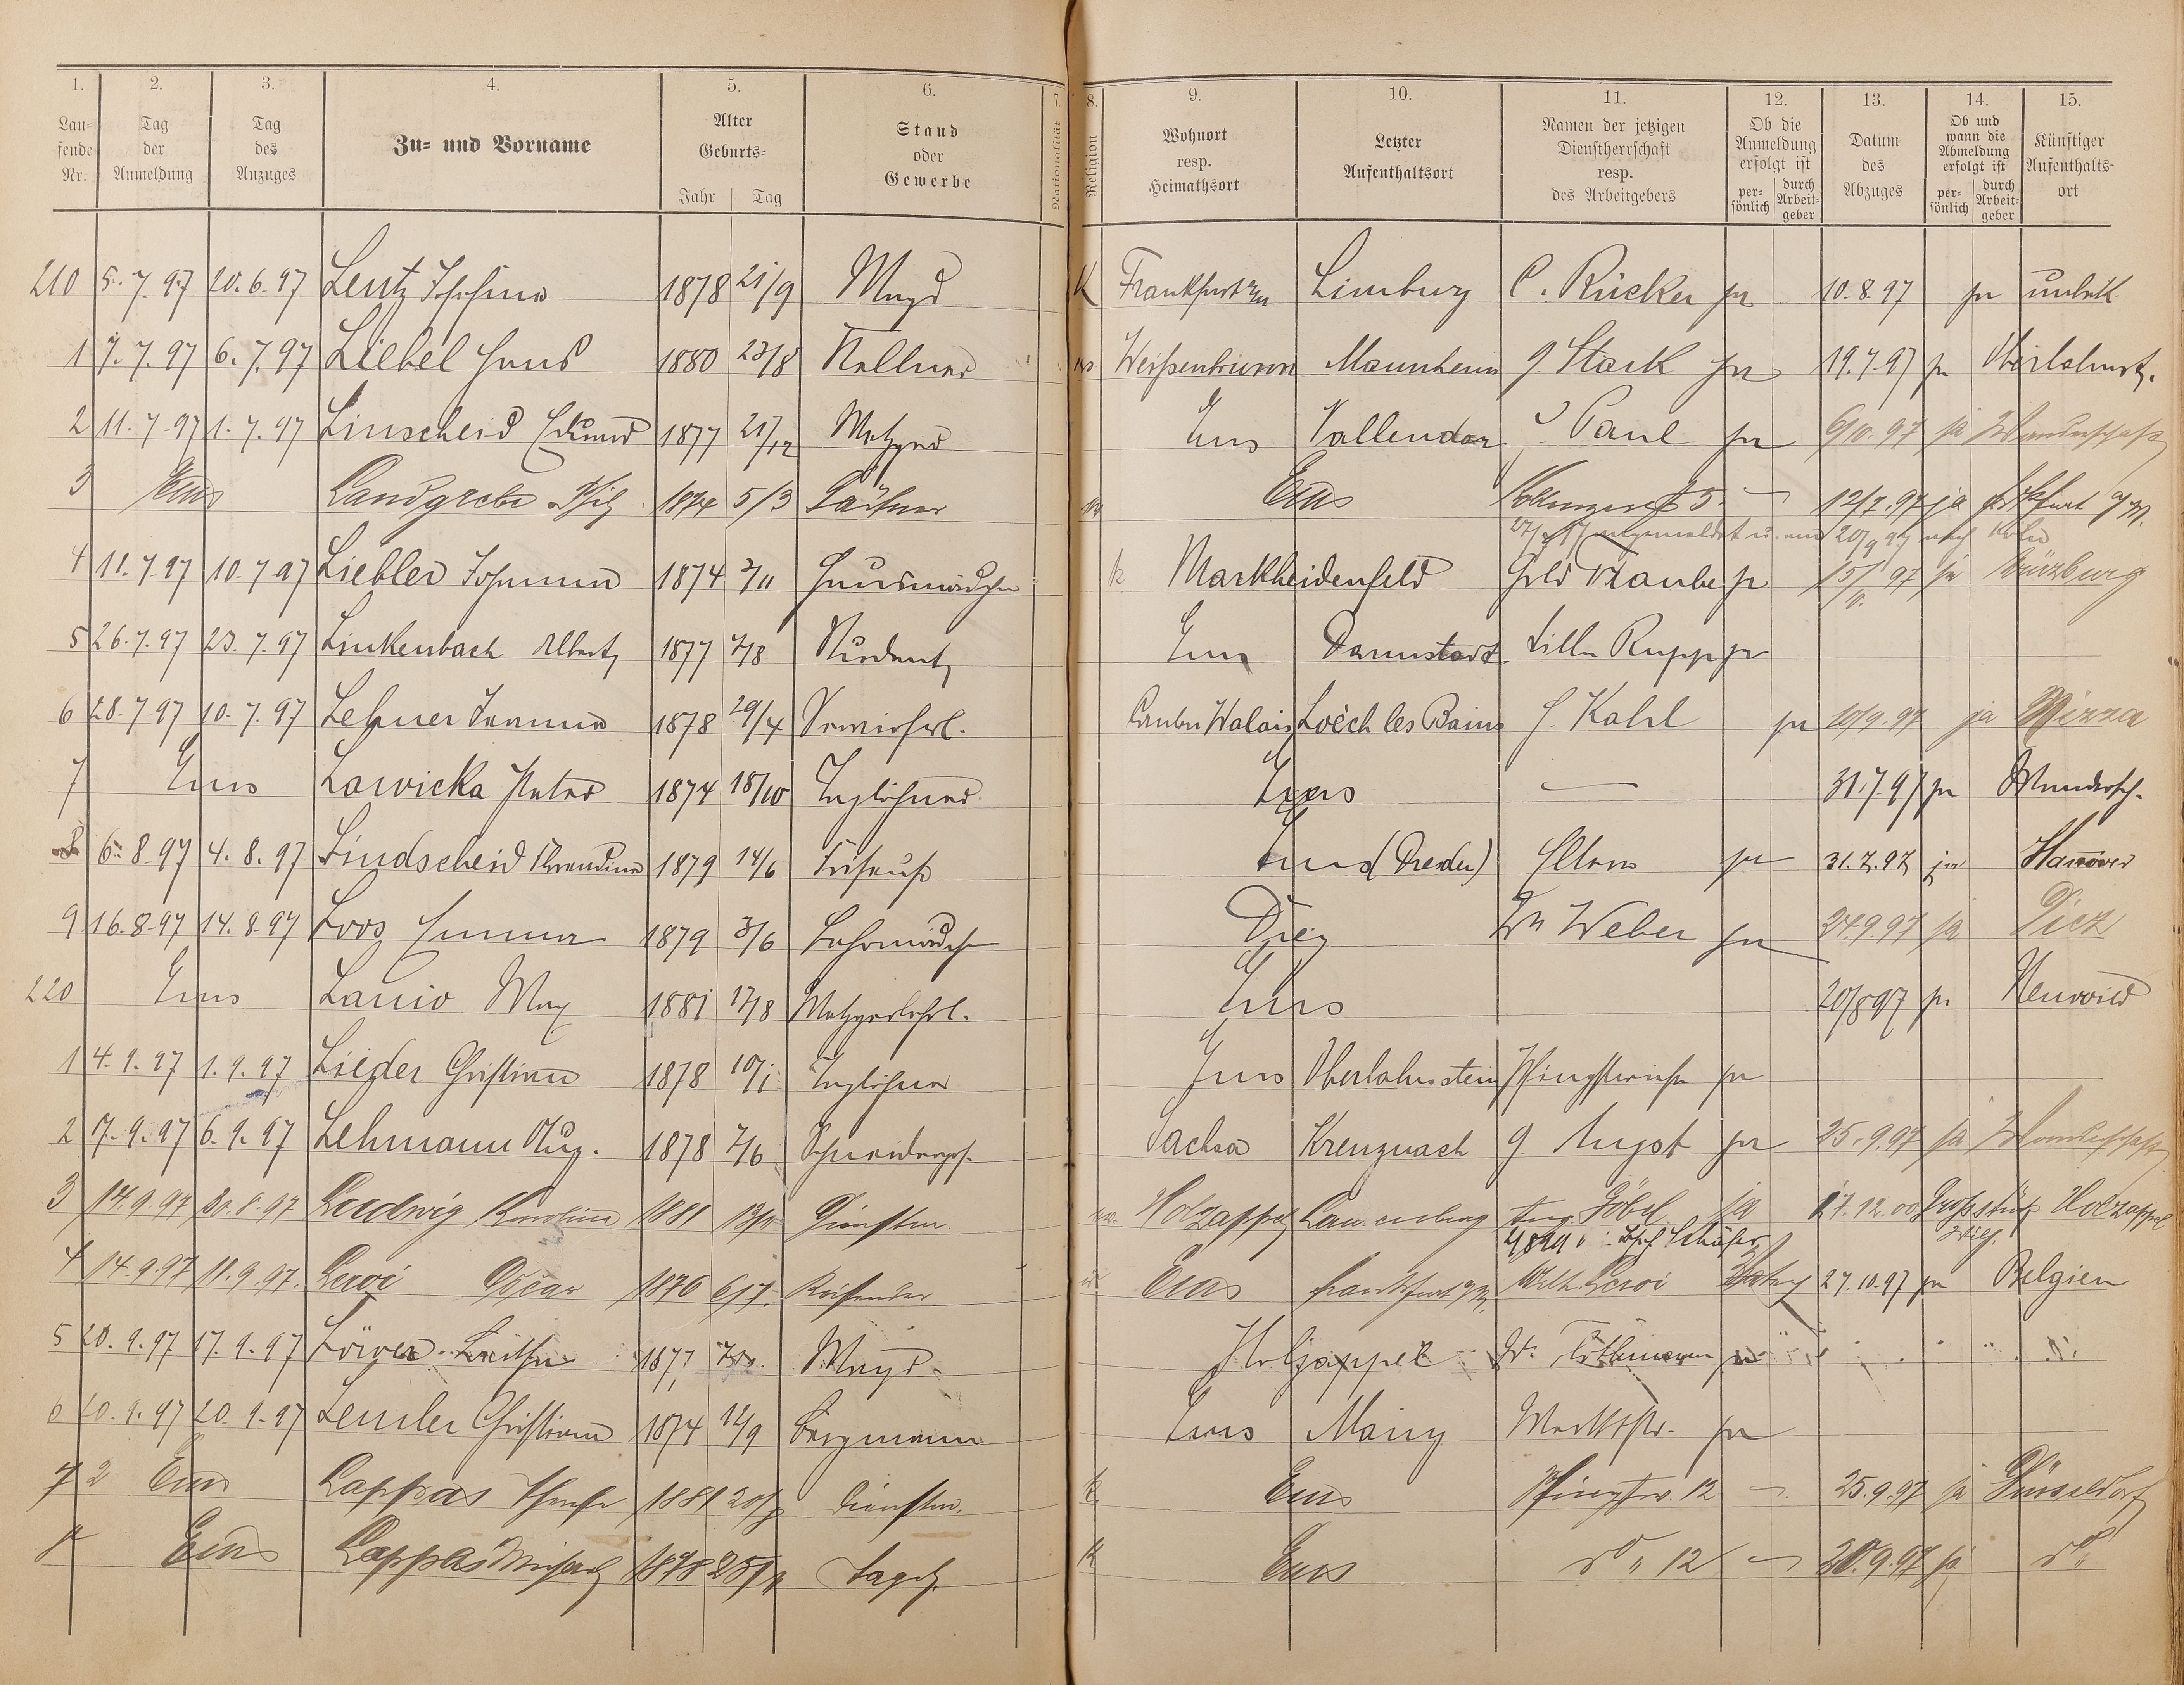 1. 2. 3. 4. 5. 6. 7. 8. 9. 10. 11. 12. 13. 14. 15.
Lau-
fende
Nr.
Tag
der
Anmeldung
Tag
des
Anzuges
Zu- und Vorname
Alter
Geburts-
Jahr Tag
Stand
oder
Gewerbe
Nationalität
Religion
Wohnort
resp.
Heimathsort
Letzter
Aufenthaltsort
Namen der jetzigen
Dienstherrschaft
resp.
des Arbeitgebers
Ob die
Anmeldung
erfolgt ist
per-
sönlich
durch
Arbeit-
geber
Datum
des
Abzuges
Ob und
wann die
Abmeldung
erfolgt ist
per-
sönlich
durch
Arbeit-
geber
Künftiger
Aufenthalts-
ort
210 5.7.97 20.6.97 Lentz Josefina 1878 21/9 Magd K Frankfurt a/M Limburg C. Rücker ja 10.8.97 ja unbek
1 7.7.97 6.7.97 Liebel Hans 1880 23/8 Kellner Weißenbrunn Mannheim J. Stark ja 19.7.97 ja Oberlahnst.
2 11.7.97 1.7.97 Linscheid Edmund 1877 21/12 Metzger Ems Vallendar J Paul ja 6/10.97 ja Wanderschaft
3 Ems Landgrebe Phil 1874 5/3 Ems 5 – 12/7.97 ja Frkfurt a/M.
angemeldet u. am 20/9 97 nach Köln
4 11.7.97 10.7.97 Liebler Johanna 1874 2/11 Hausmädchen k Markheidenfeld Gold Traube ja 15/ 97 ja Würzburg
5 26.7.97 23.7.97 Linkenbach Albert 1877 7/8 Student Ems Darmstadt Villa Rupp ja
6 28.7.97 10.7.97 Lehner 1878 29/4 Canton Walais Loèch les Bains H. Kahl ja 10/9.97 ja Nizza
7 Ems Lawicka Peter 1874 18/10 Taglöhner Ems — 31.7.97 ja Wandersch.
8 6.8.97 4.8.97 Lindscheid 1879 14/6 Ems (Dresden) Eltern ja 31.7.97 ja Hanover
9 16.8.97 14.8.97 Loos Emma 1879 3/6 Lehrmädchen Diez Wn Weber ja 24.9.97 ja Diez
220 Ems Lanio Max 1881 17/8 Metzgerlehrl. Ems 20/8 97 ja Neuwied
1 4.9.97 1.9.97 Lieder Christian 1878 10/1 Taglöhner Ems Oberlahnstein Pfingstwiese ja
2 7.9.97 6.9.97 Lehmann Aug. 1878 7/6 Schneiderges. Sachsa Kreuznach J. August ja 25.9.97 ja Wanderschaft
3 14.9.97 30.8.97 Ludwig Karoline 1881 Dienstm. Holzappel Aug. Göbel ja 17.12.00 Holzappel
Schäfer
4 14.9.97 11.9.97. Leroi Oscar 1876 6/7. Reisender Ems Frankfurt a/M. Wilh. Leroi 27.10.97 ja Belgien
5 20.9.97 17.9.97 1877 Magd Holzappel ja
6 20.9.97 20.9.97 Lemler Christian 1874 12/9 Bergmann Ems Mainz Marktstr. ja
7 2 Ems Lappas 1881 Dienstm. k. Ems Pfingstw. 12 – 25.9.97 ja Düsseldorf
8 Ems Lappas Michael 1878 Tagel. K Ems do " 12 – 20.9.97 ja do "